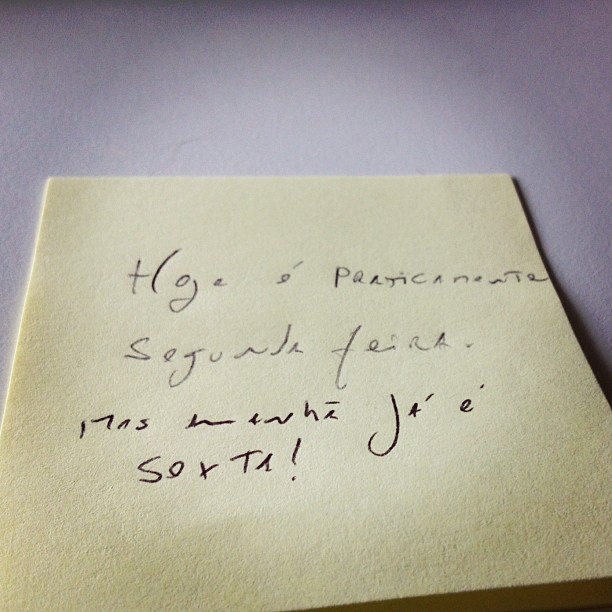 Hoje é praticamente
segunda feira.
Mas amanhã já é
sexta!